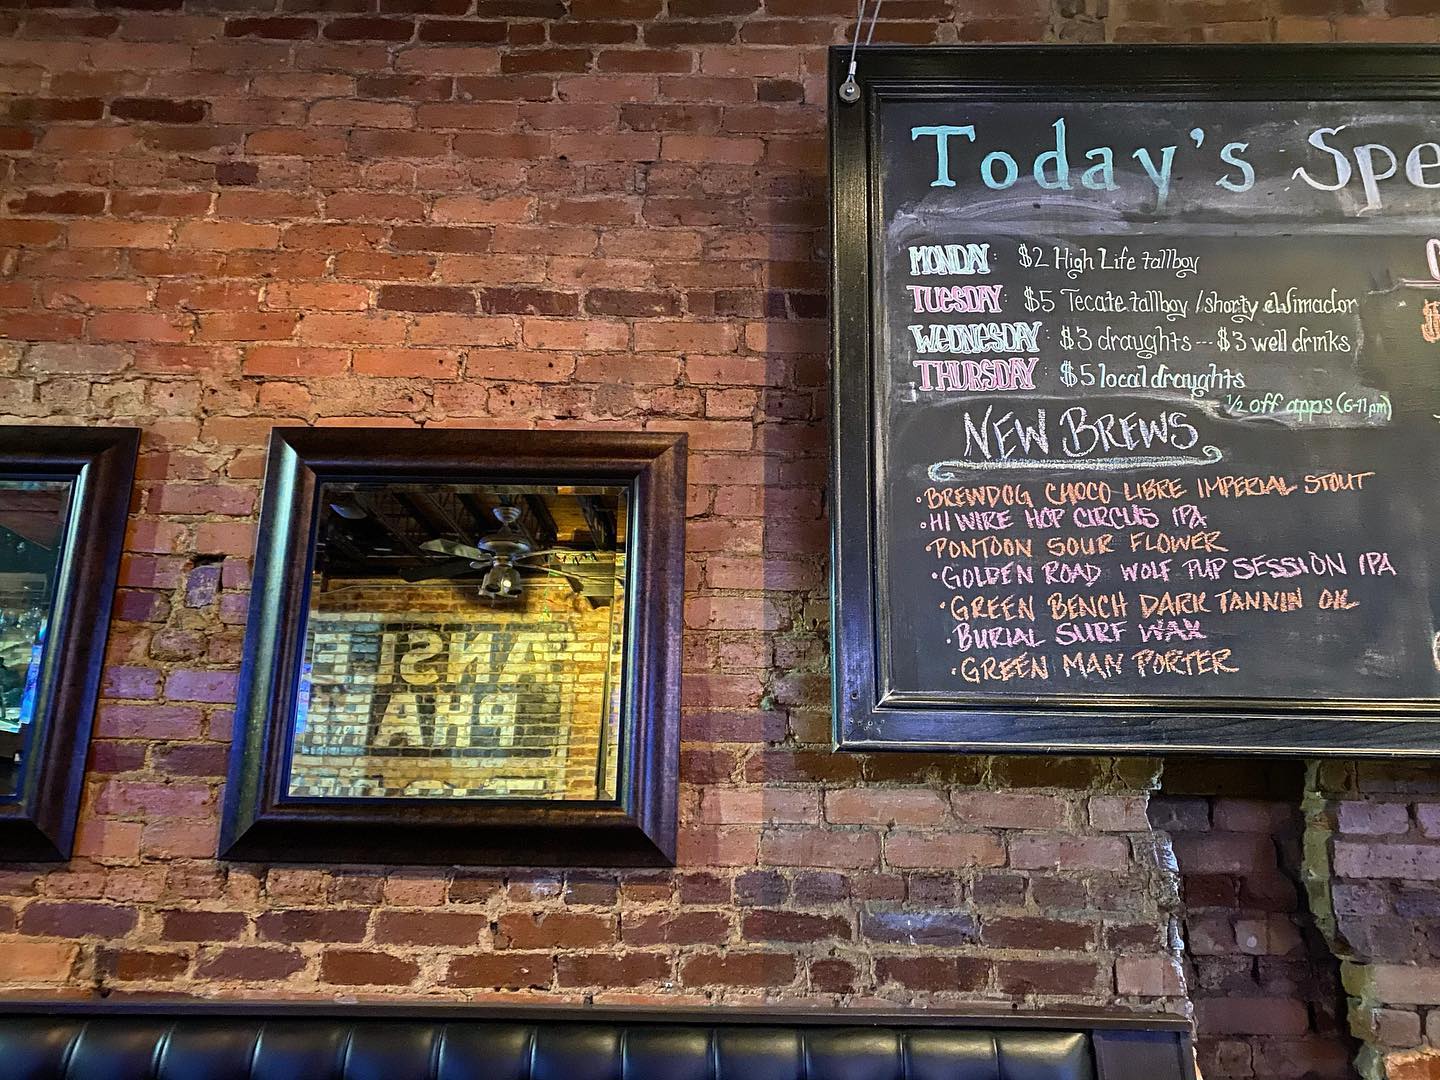 Today's Spe
MONDAY: $2 High Life tallboy
TUESDAY: $5 Tecate tallboy / shorty el Jimador
WEDNESDAY: $3 draughts --- $3 well drinks
THURSDAY: $5 local draughts
1/2 off apps (6-11pm)
NEW BREWS
• BREWDOG CHOCO LIBRE IMPERIAL STOUT
• HI WIRE HOP CIRCUS IPA
• PONTOON SOUR FLOWER
• GOLDEN ROAD WOLF PUP SESSION IPA
• GREEN BENCH DARK TANNIN OIL
• BURIAL SURF WAX
• GREEN MAN PORTER
ANSLE
PHA